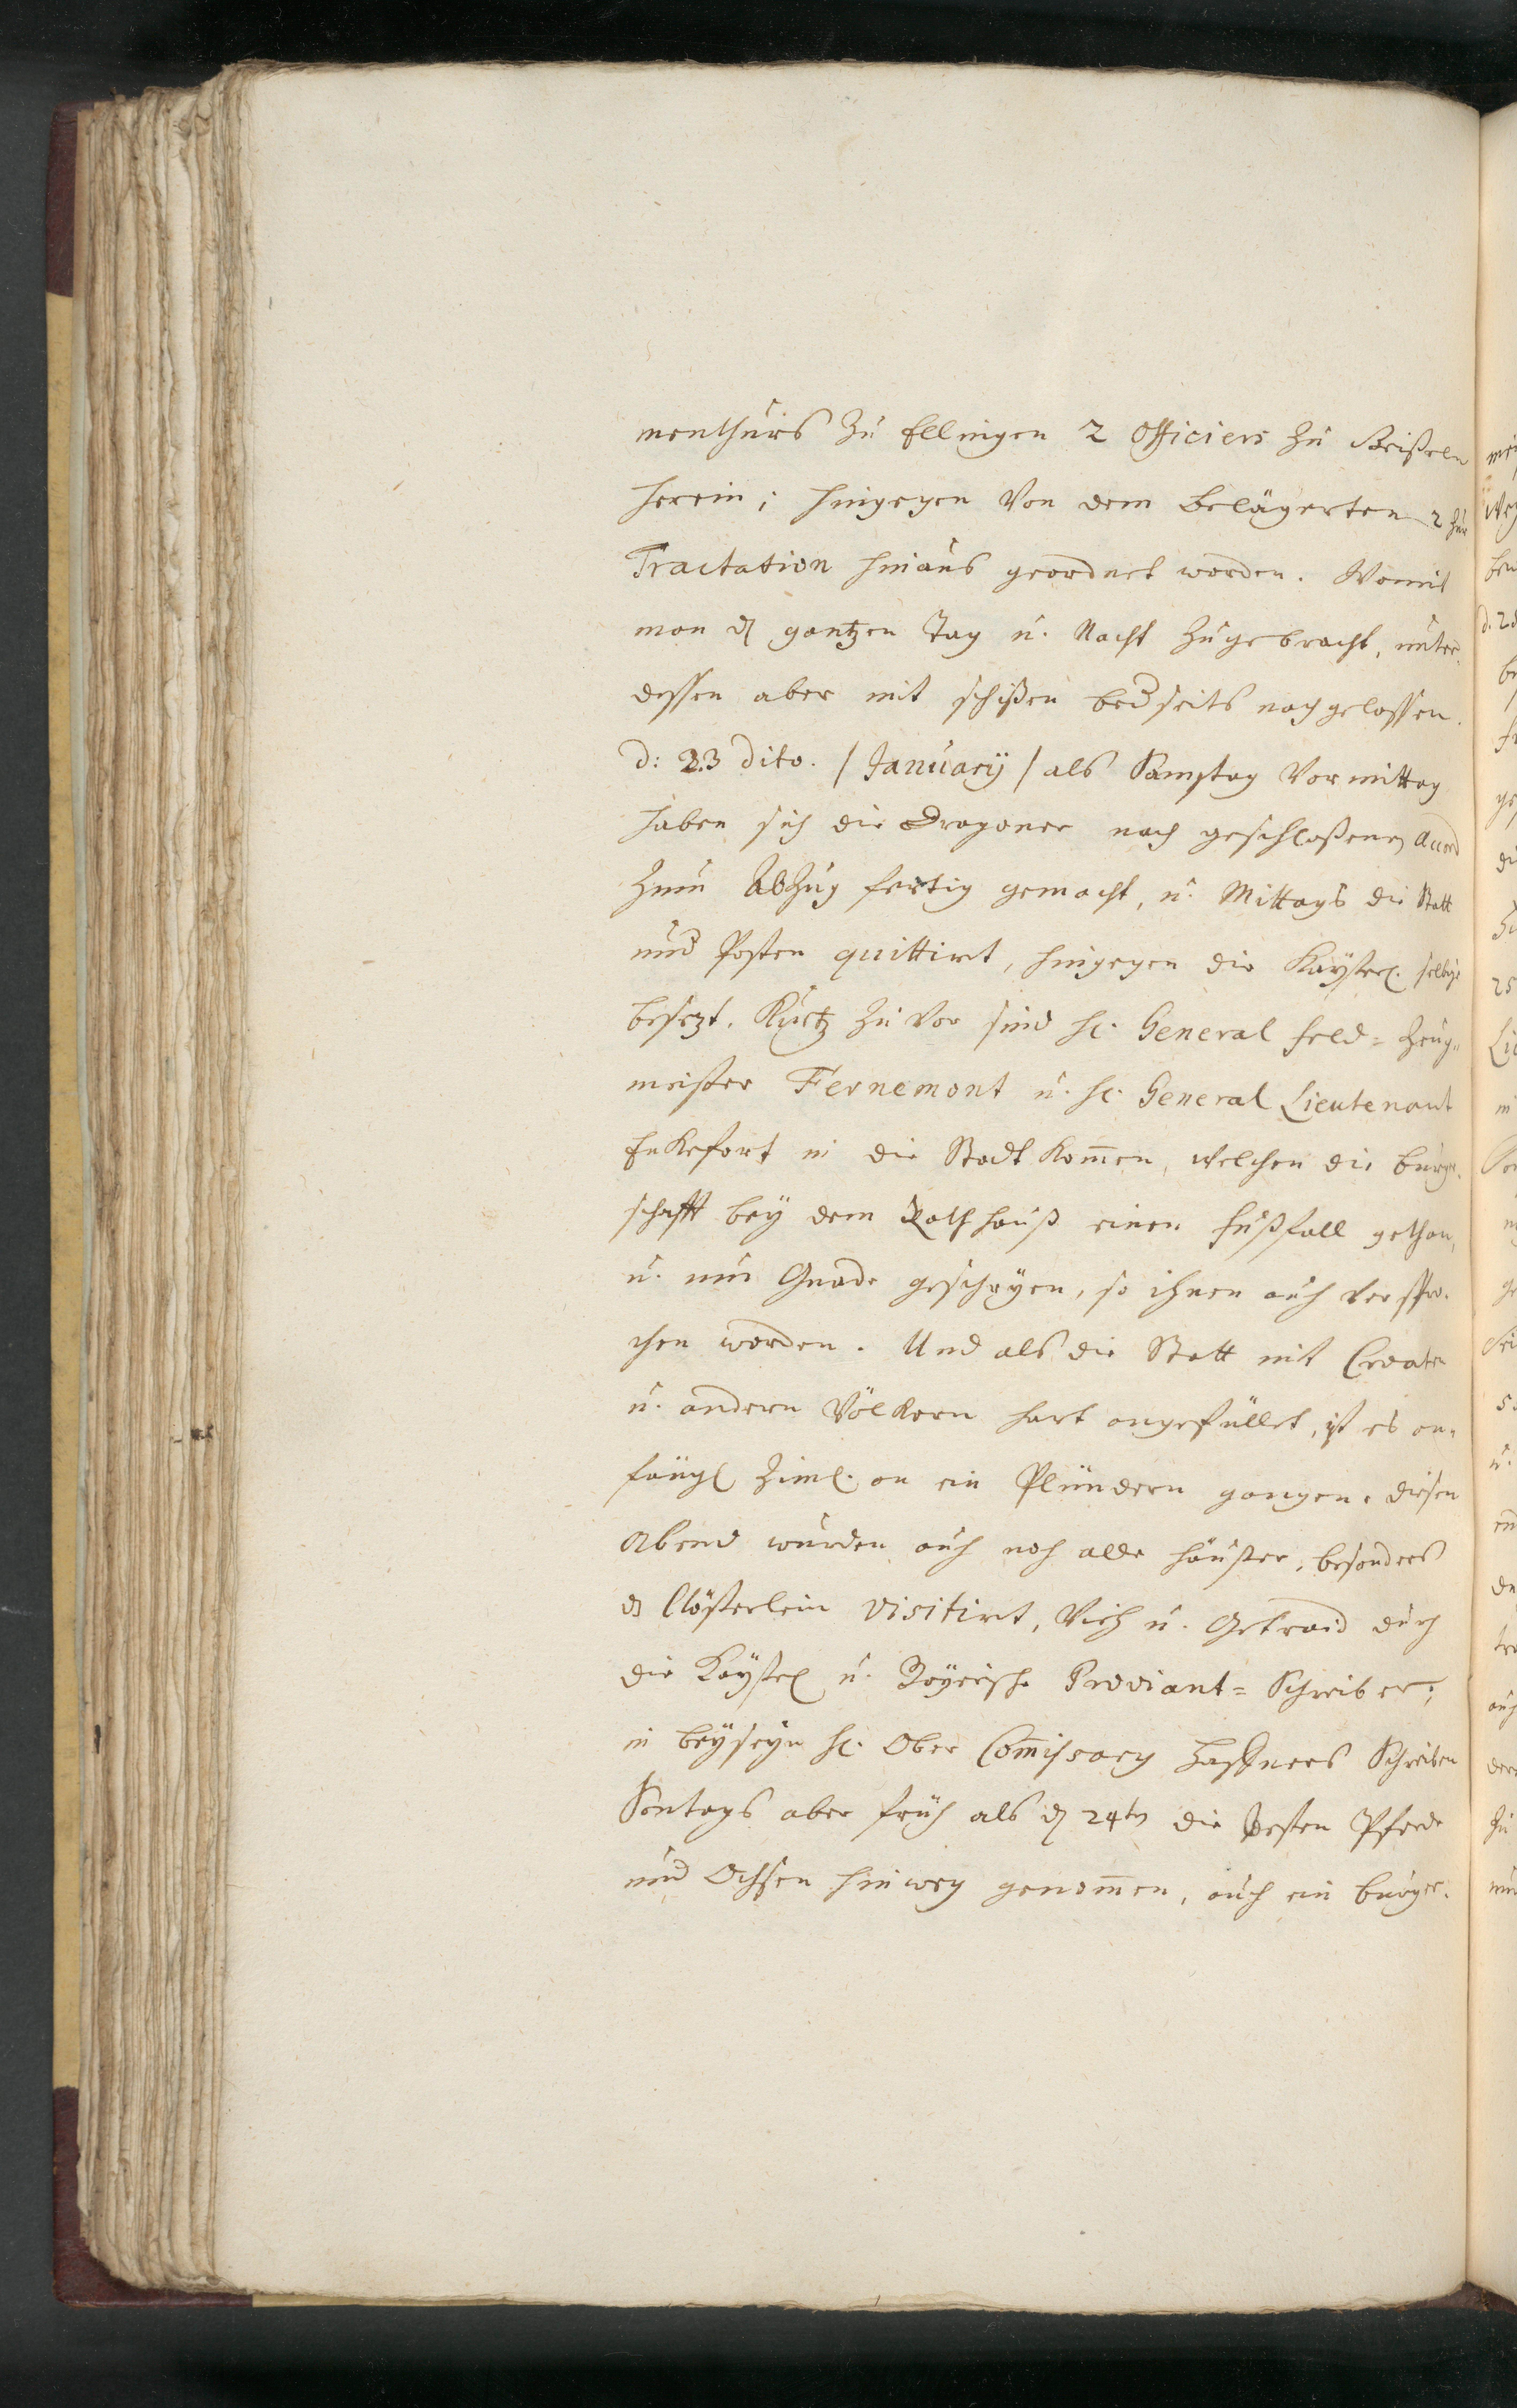 menthurs zu Ellingen 2 Officiers zu Geißeln
herein; hingegen von dem belägerten 2 zur
Tractation hinaus geordnet worden. Womit
man dȝ gantzen Tag u. Nacht zugebracht, unter-
dessen aber mit schißen bedseits nachgelassen.
d: 23 dito. / January / als Samstag Vormittag
haben sich die Dragoner nach geschloßenen Accord
zum Abzug fertig gemacht, u. Mittags die Statt
und Posten quittirt, hingegen die Kayserl. selbige
besezt. Kurtz zuvor sind H. General Feld-Zeug-
meister Fernemont u. H. General Lieutenant
Enkefort in die Stadt kom̅en, welchen die burger-
schafft bey dem Rathhauß einen fußfall gethan,
u. um Gnade geschryen, so ihnen auch verspro-
chen worden. Und als die Statt mit Croaten
u. andern Völkern hart angefüllet, ist es an-
fängl ziml. an ein Plündern gangen. diesen
Abend wurden auch noch alle häußer, besonders
ds Clösterlein visitirt, Vieh u. Getraid durch
die Kayserl u. Bayerische Proviant-Schreiber,
in beyseyn H. Ober Com̅issary Schreiben
Sontags aber früh als dȝ 24ten die besten Pferde
und Ochsen hinweg genom̅en, auch ein burger-